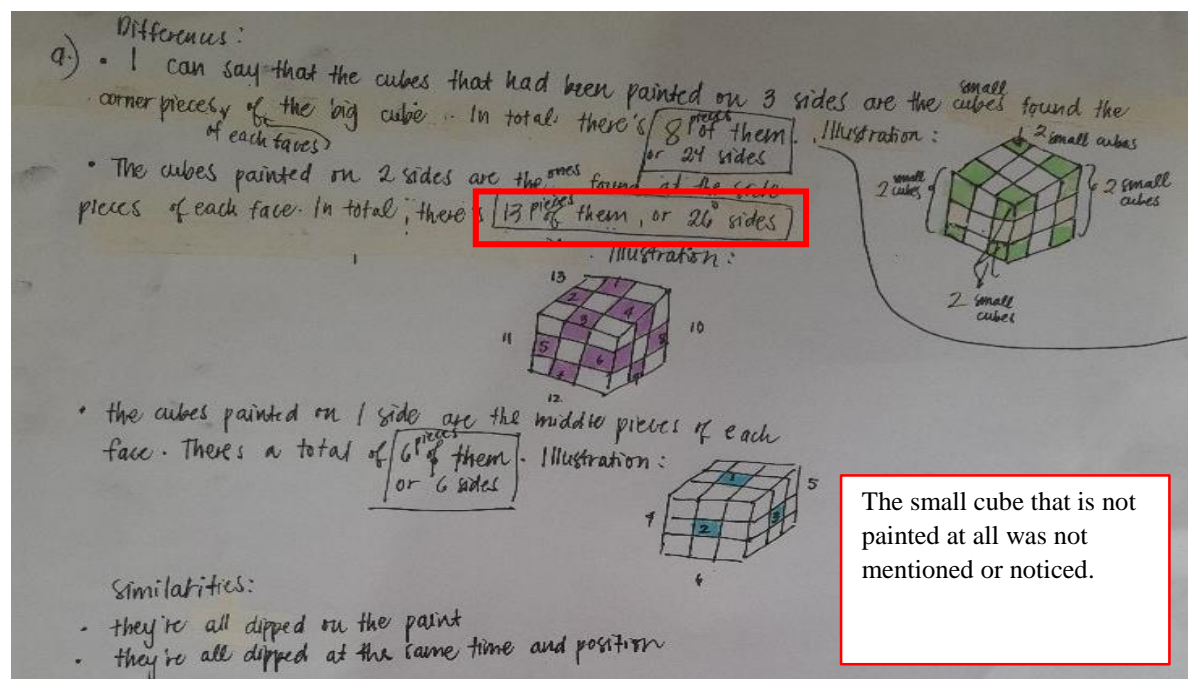 Differences:
a.) • I can say that the cubes that had been painted on 3 sides are the small cubes found the
corner pieces, of the big cube. In total there's 8 pieces of them. Illustration:
of each faces
or 24 sides
2 small cubes
2 small cubes
2 small cubes
2 small cubes
• The cubes painted on 2 sides are the ones found at the side
pieces of each face. In total, there's 13 pieces of them, or 26 sides
Illustration:
13
1
2
3
4
5
6
7
8
9
10
11
12
• the cubes painted on 1 side are the middle pieces of each
face. There's a total of 6 pieces of them. Illustration:
or 6 sides
1
2
3
4
5
6
The small cube that is not
painted at all was not
mentioned or noticed.
Similarities:
- they're all dipped on the paint
- they're all dipped at the same time and position